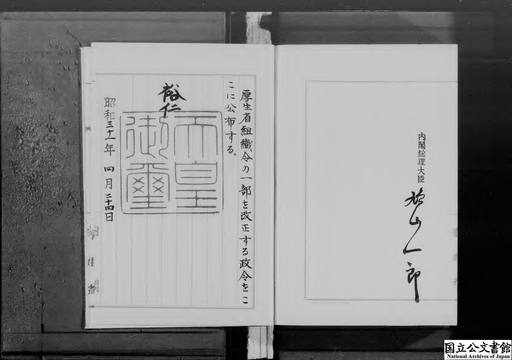 厚生省組織令の一部を改正する政令をこ
こに公布する。
裕仁
天皇
御璽
昭和三十一年四月二十四日
内閣総理大臣
鳩山一郎
国立公文書館
National Archives of Japan